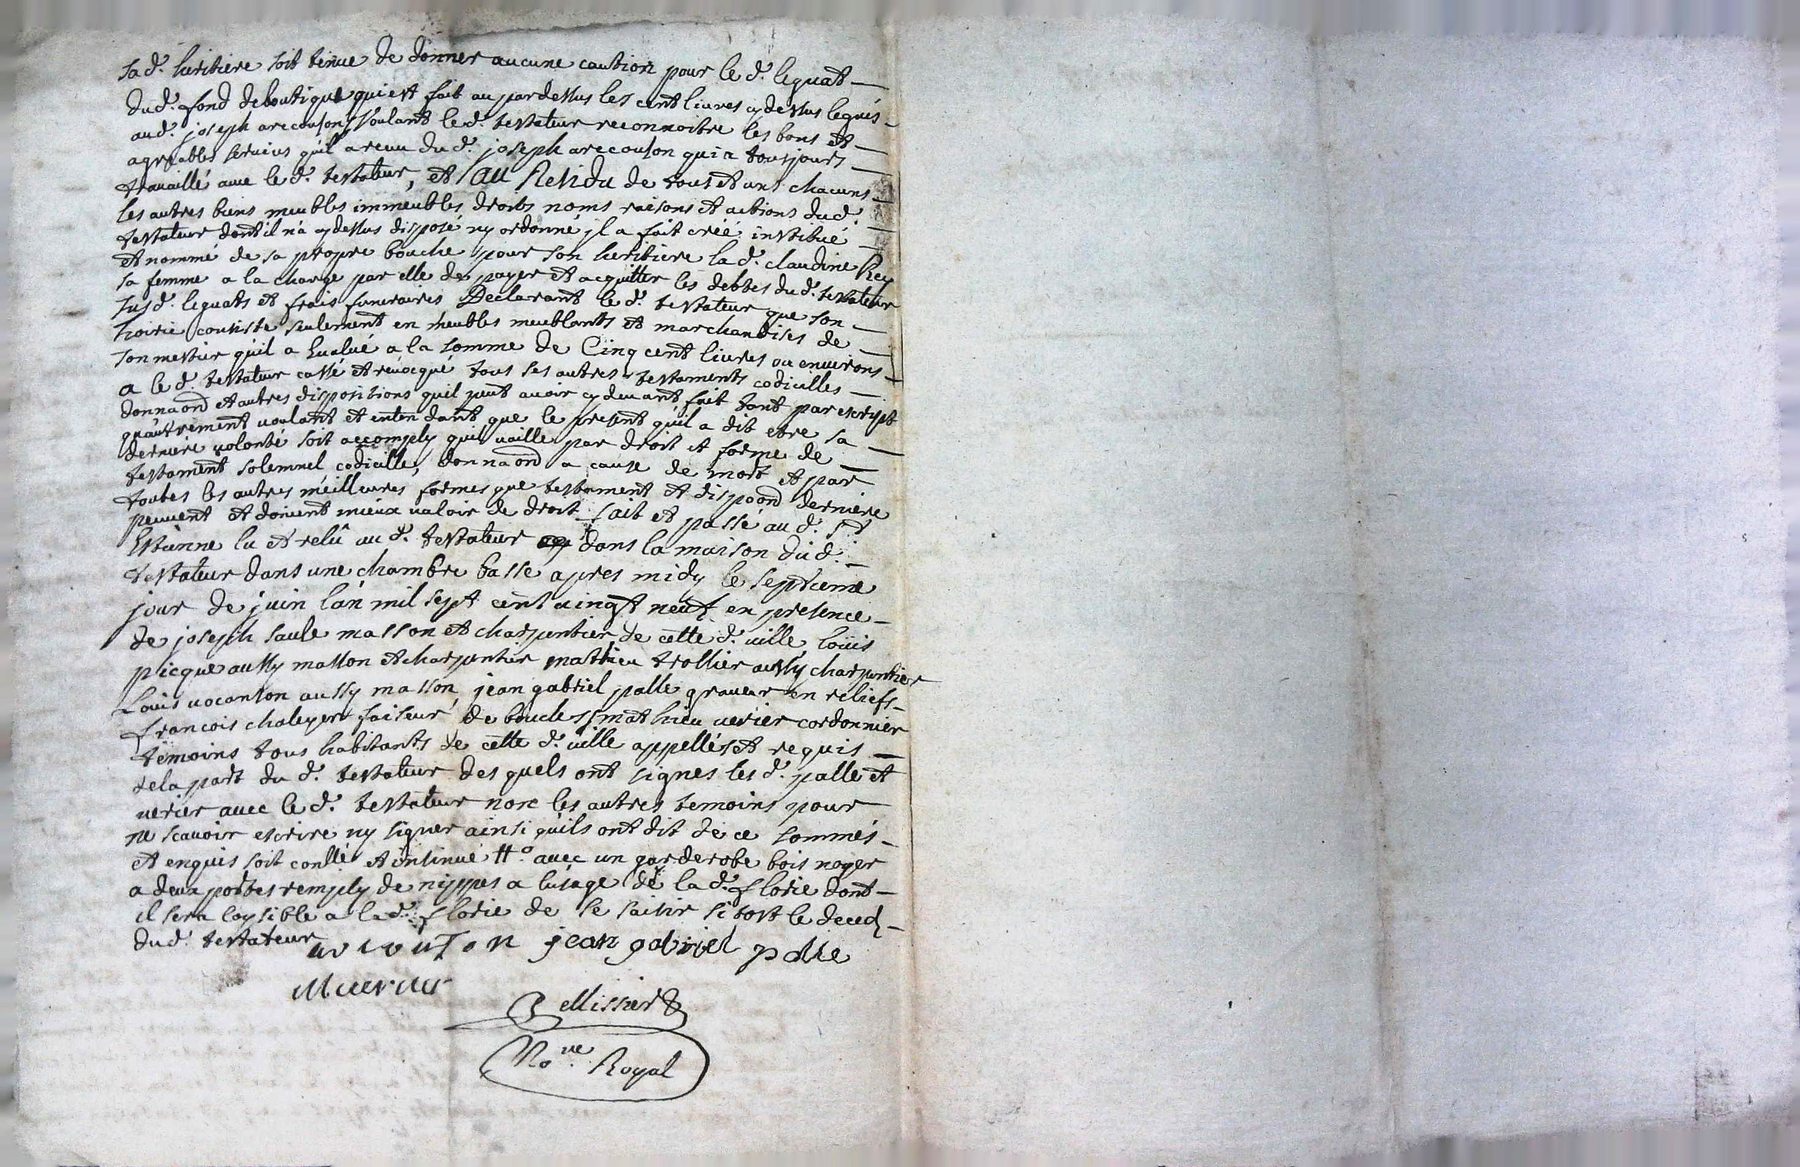 sa d. heritiere soit tenue de donner aucune caution pour le d. leguat
du d. fond de boutique qui est fait au par dessus les cent livres cy dessus legués
au d. joseph arecouson, voulant le d. testateur reconnoitre les bons et
agreables services qu'il a receu du d. joseph arecouson qui a tousjours
travaillé avec le d. testateur, et au Residu de tous et uns chacuns
les autres biens meubles immeubles droits noms raisons et actions du d.
testateur dont il n'a cy dessus disposé ny ordonné jl a fait créé institué
et nommé de sa propre bouche pour son heritiere la d. claudine Rey
sa femme a la charge par elle de payer et acquitter les debtes du d. testateur
susd. leguats et frais funeraires Declarant le d. testateur que son
hoirie consiste seulement en meubles meublants et marchandises de
son mestier qu'il a Evalué a la somme de Cinq cent livres ou environs
a le d. testateur cassé et révocqué tous ses autres testaments codicilles
donnaond et autres dispositions qu'il peut avoir cy devant fait tant par escript
qu'autrement voulant et entendant que le present qu'il a dit etre sa
derniere volonté soit accomply qu'il vaille par droit et forme de
testament solemnel codicille, donnaond a cause de mort et par
toutes les autres meilleures formes que testament et dispoond derniere
peuvent et doivent mieux valoir de droit fait et passé au d. St
Estienne lu et relû au d. testateur dans la maison du d.
testateur dans une chambre basse apres midy le septieme
jour de juin l'an mil sept cent vingt neuf en presence
de joseph saule masson et charpentier de cette d. ville loüis
picque aussy masson et charpentier mathieu trollier aussy charpentier
Louis vocanson aussy masson jean gabriel palle graveur en reliefs
francois chaleyer faiseur de boucles mathieu verier cordonnier
temoins tous habitants de cette d. ville appellés et requis
de la part du d. testateur des quels ont signes les d. palle et
verier avec le d. testateur non les autres temoins pour
ne scavoir escrire ny signer ainsi qu'ils ont dit de ce sommés
et enquis soit conllé et intinué tt.° avec un garderobe bois noyer
a deux portes remply de nippes a l'usage de la d. florie dont
il sera loysible a la d. florie de se saisir si tost le deced
du d. testateur
jean gabriel palle
Mverier
Pellissier
No.re Royal